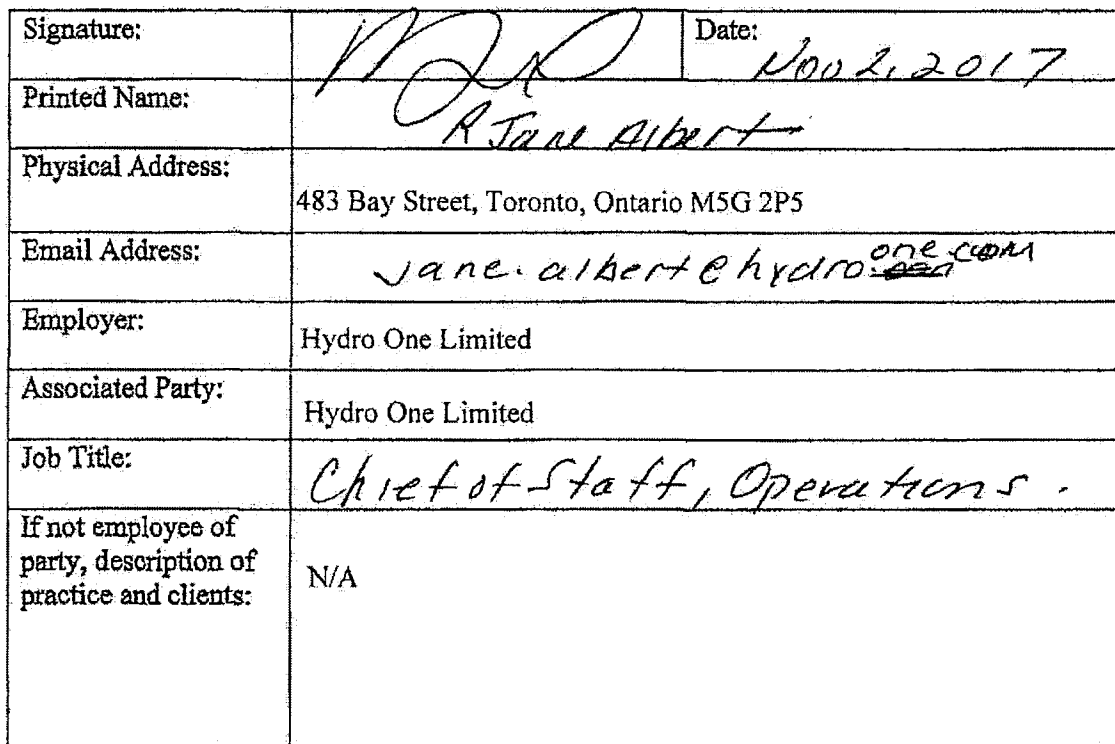 Signature:
Date:
Nov 2, 2017
Printed Name:
R Jane Albert
Physical Address:
483 Bay Street, Toronto, Ontario M5G 2P5
Email Address:
jane.albert@hydroone.com
Employer:
Hydro One Limited
Associated Party:
Hydro One Limited
Job Title:
Chief of Staff, Operations.
If not employee of
party, description of
practice and clients:
N/A